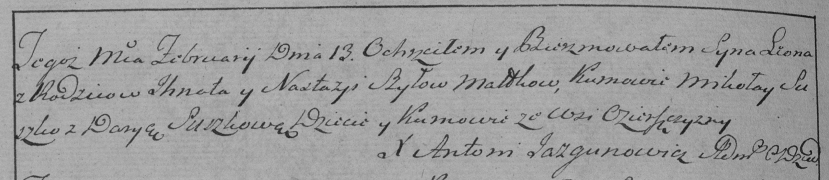 Tegoż Mca Februarij Dnia 13. Ochrzciłem y Bierzmowałem Syna Leona
z Rodzicow Ihnata y Nastazyi Szyłow Małżkow, Kumowie Mikołay Su
szko z Daryą Suszkową Dziecie y Kumowie ze wsi
X Antoni Jazgunowicz Adm